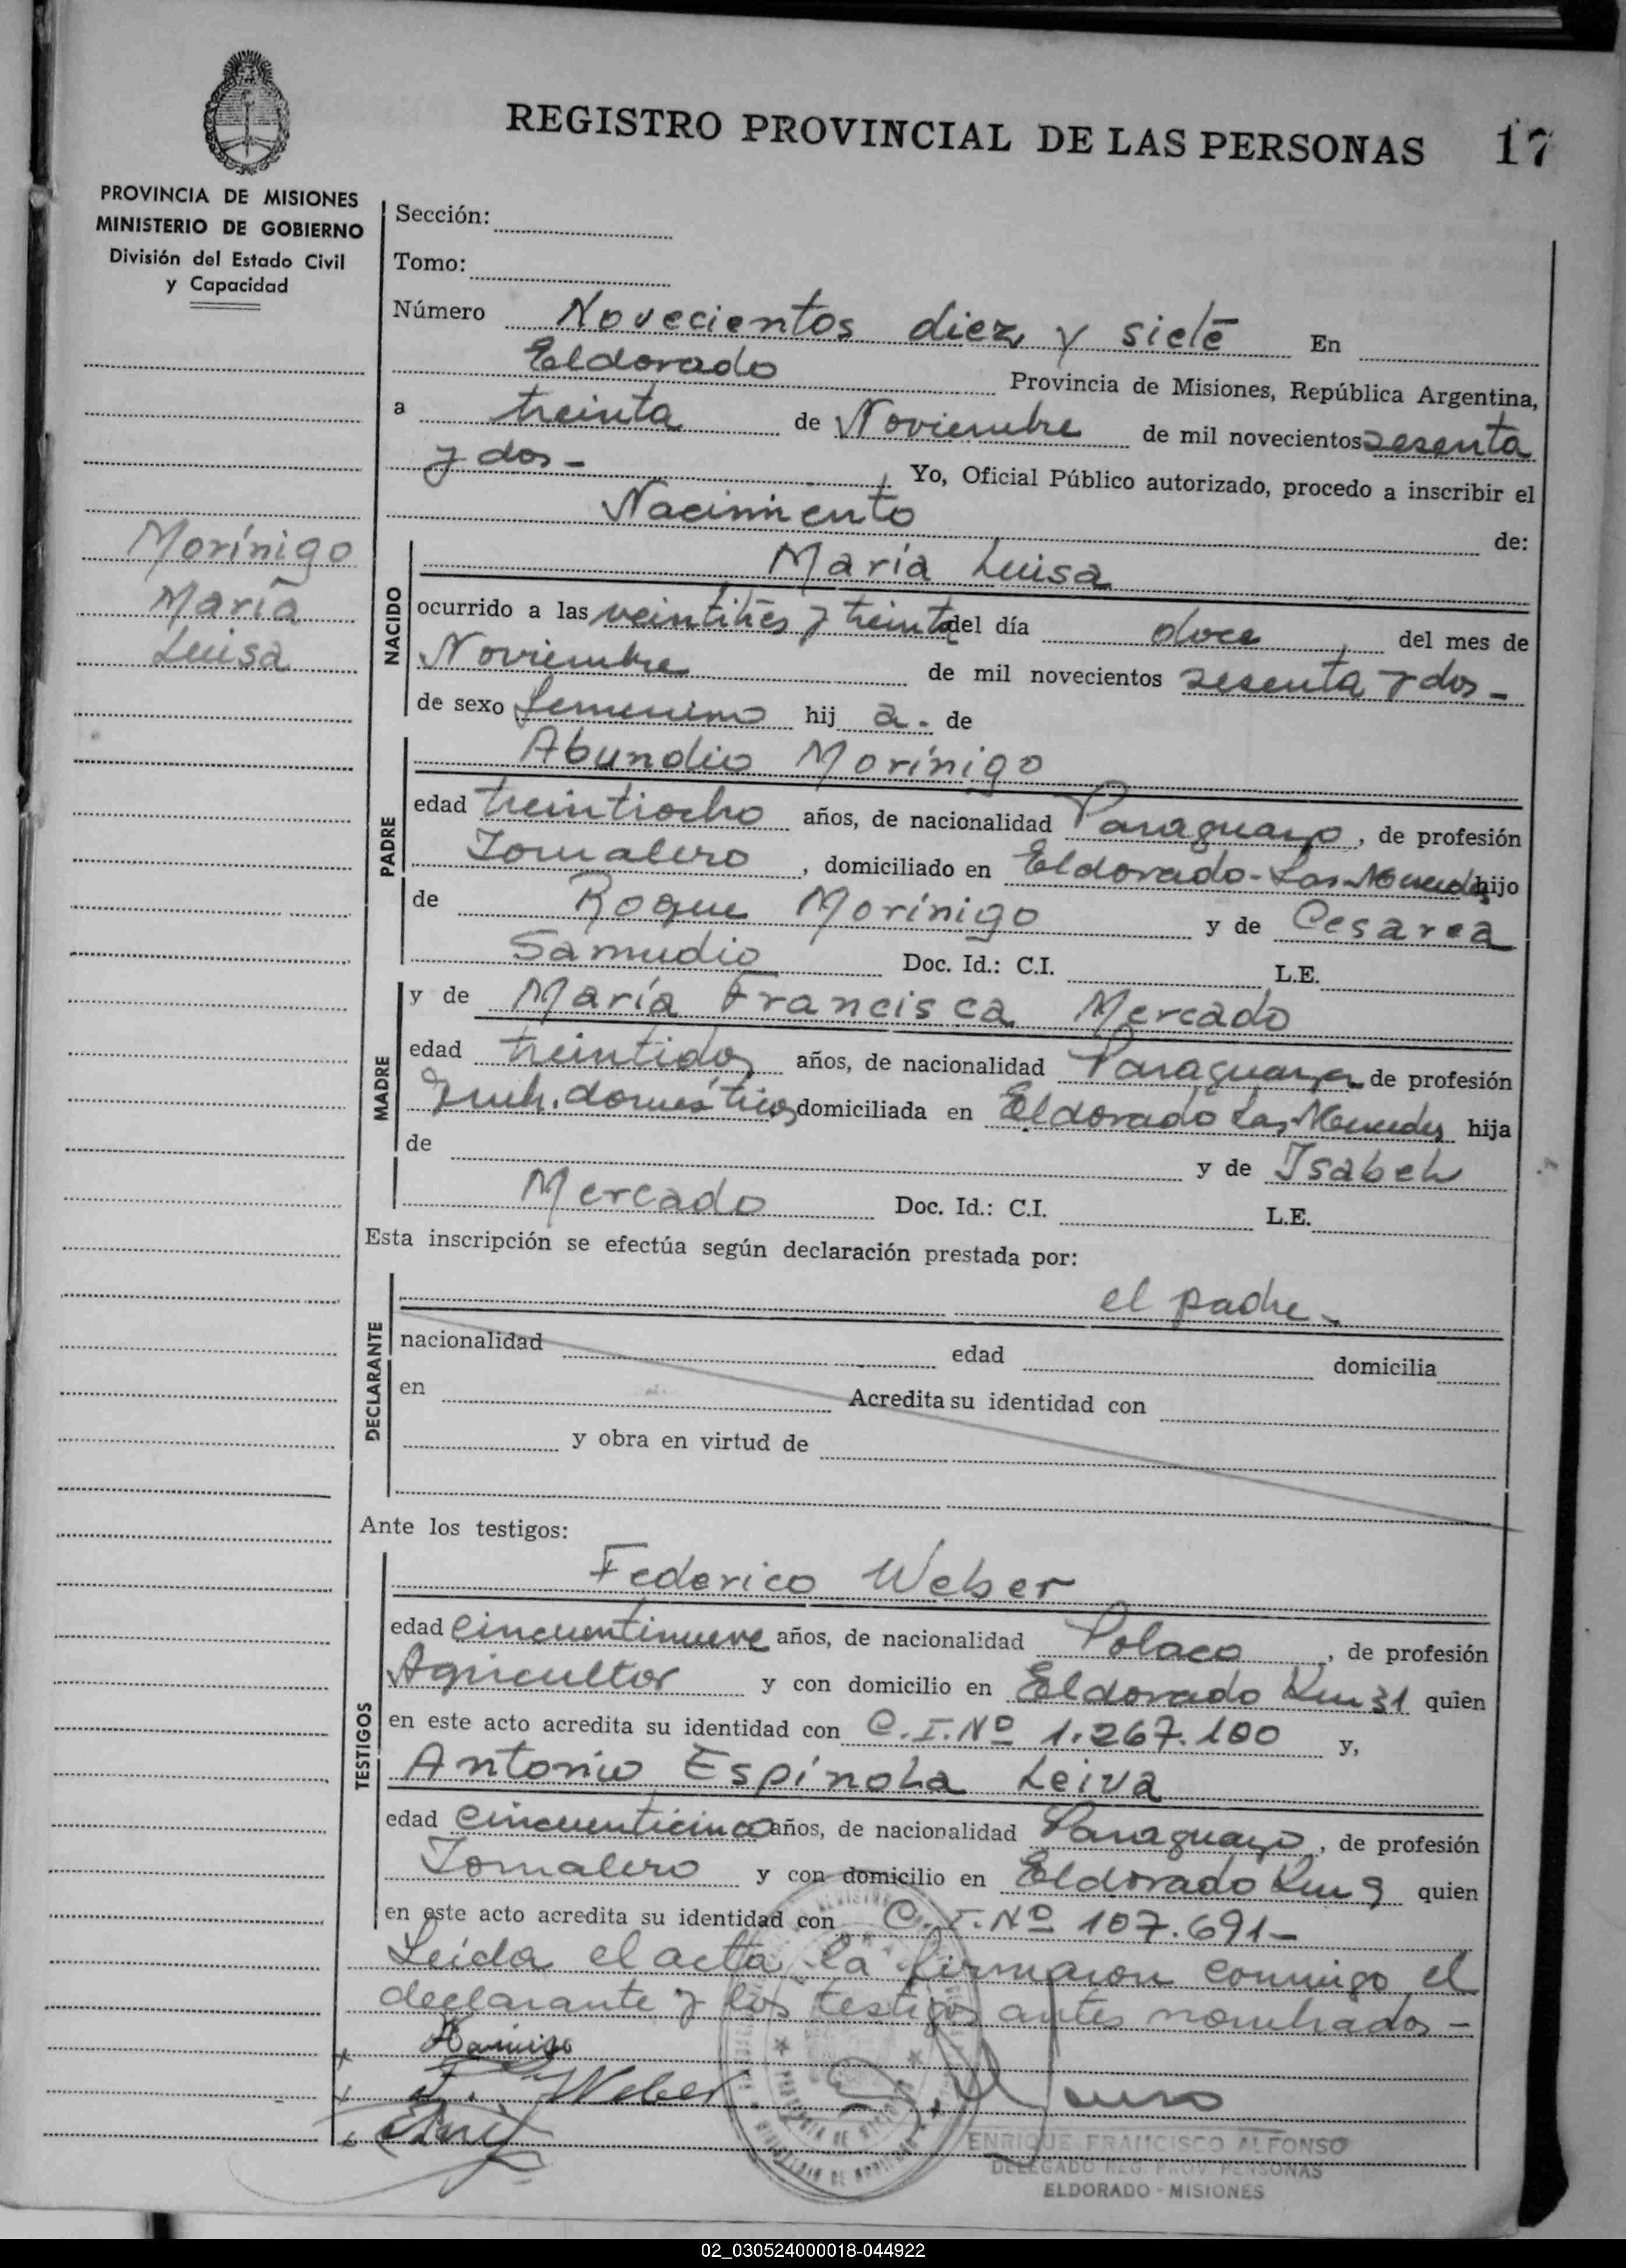 REGISTRO PROVINCIAL DE LAS PERSONAS 17
PROVINCIA DE MISIONES
MINISTERIO DE GOBIERNO
División del Estado Civil
y Capacidad
Morínigo
María
Luisa
Sección:
Tomo:
Número Novecientos diez y siete En
Eldorado Provincia de Misiones, República Argentina,
a treinta de Noviembre de mil novecientos sesenta
y dos - Yo, Oficial Público autorizado, procedo a inscribir el
Nacimiento de:
NACIDO
María Luisa
ocurrido a las veintitres y treinta del día doce del mes de
Noviembre de mil novecientos sesenta y dos -
de sexo femenino hij a.- de
PADRE
Abundio Morínigo
edad treintiocho años, de nacionalidad Paraguayo, de profesión
Jornalero, domiciliado en Eldorado-Las Mercedes hijo
de Roque Morínigo y de Cesarea
Samudio Doc. Id.: C.I. L.E.
MADRE
y de María Francisca Mercado
edad treintidos años, de nacionalidad Paraguaya de profesión
domésticos domiciliada en Eldorado Las Mercedes hija
de y de Isabel
Mercado Doc. Id.: C.I. L.E.
Esta inscripción se efectúa según declaración prestada por:
DECLARANTE
el padre -
nacionalidad edad domicilia
en Acredita su identidad con
y obra en virtud de
Ante los testigos:
TESTIGOS
Federico Weber
edad cincuentinueve años, de nacionalidad Polaco, de profesión
Agricultor y con domicilio en Eldorado Km 31 quien
en este acto acredita su identidad con C.I.Nº 1.267.100 y,
Antonio Espínola Leiva
edad cincuenticinco años, de nacionalidad Paraguayo, de profesión
Jornalero y con domicilio en Eldorado Km 9 quien
en este acto acredita su identidad con C.I.Nº 107.691-
Leída el acta, la firmaron conmigo el
declarante y los testigos antes nombrados -
Weber
ENRIQUE FRANCISCO ALFONSO
DELEGADO REG. PROV. PERSONAS
ELDORADO - MISIONES
02_030524000018-044922